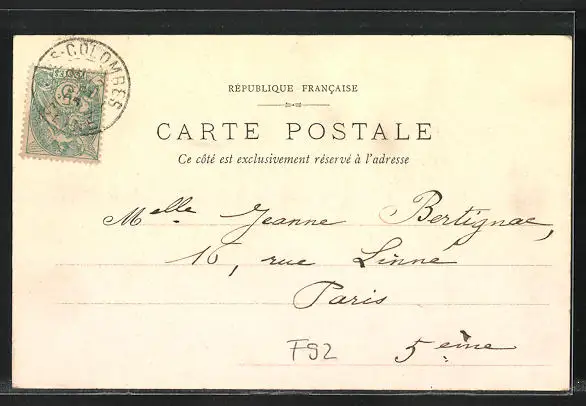 S-COLOMBES
RÉPUBLIQUE FRANÇAISE
CARTE POSTALE
Ce côté est exclusivement réservé à l'adresse
Melle Jeanne Bertignac,
16, rue Linné
Paris
F92 5ème